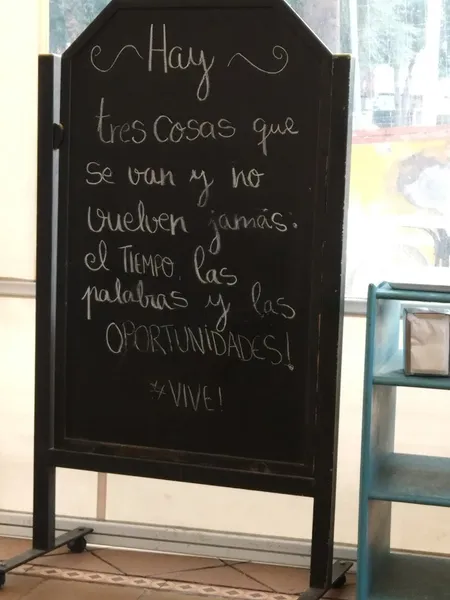 Hay
tres cosas que
se van y no
vuelven jamás:
el TIEMPO, las
palabras y las
OPORTUNIDADES!
*VIVE!